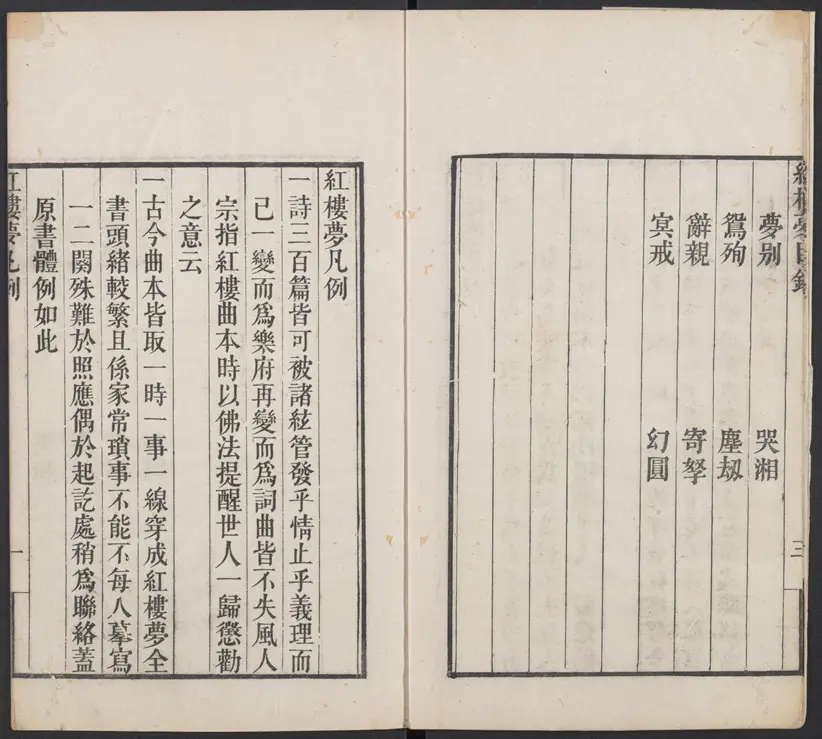 紅樓夢目錄
三
夢别
哭湘
鴛殉
塵劫
辭親
寄孥
冥戒
幻圓
紅樓夢凡例
一詩三百篇皆可被諸絃管發乎情止乎義理而
已一變而爲樂府再變而爲詞曲皆不失風人
宗指紅樓曲本時以佛法提醒世人一歸懲勸
之意云
一古今曲本皆取一時一事一線穿成紅樓夢全
書頭緒較繁且係家常瑣事不能不每人摹寫
一二闋殊難於照應偶於起訖處稍爲聯絡蓋
原書體例如此
紅樓夢凡例
一